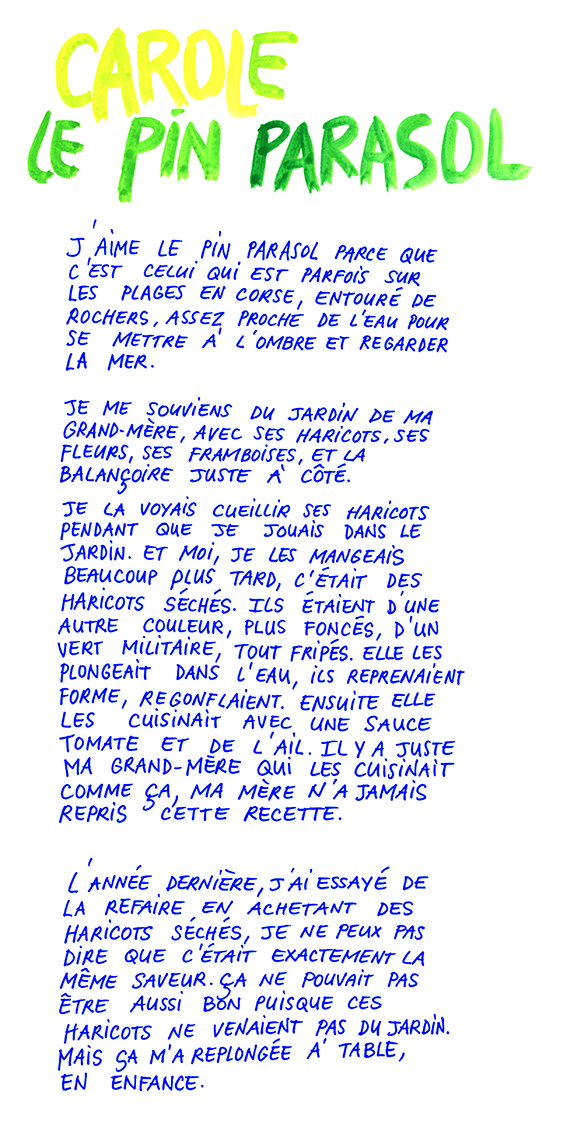 CAROLE
LE PIN PARASOL
J'AIME LE PIN PARASOL PARCE QUE
C'EST CELUI QUI EST PARFOIS SUR
LES PLAGES EN CORSE, ENTOURÉ DE
ROCHERS, ASSEZ PROCHE DE L'EAU POUR
SE METTRE À L'OMBRE ET REGARDER
LA MER.
JE ME SOUVIENS DU JARDIN DE MA
GRAND-MÈRE, AVEC SES HARICOTS, SES
FLEURS, SES FRAMBOISES, ET LA
BALANÇOIRE JUSTE À CÔTÉ.
JE LA VOYAIS CUEILLIR SES HARICOTS
PENDANT QUE JE JOUAIS DANS LE
JARDIN. ET MOI, JE LES MANGEAIS
BEAUCOUP PLUS TARD, C'ÉTAIT DES
HARICOTS SÉCHÉS. ILS ÉTAIENT D'UNE
AUTRE COULEUR, PLUS FONCÉS, D'UN
VERT MILITAIRE, TOUT FRIPÉS. ELLE LES
PLONGEAIT DANS L'EAU, ILS REPRENAIENT
FORME, REGONFLAIENT. ENSUITE ELLE
LES CUISINAIT AVEC UNE SAUCE
TOMATE ET DE L'AIL. IL Y A JUSTE
MA GRAND-MÈRE QUI LES CUISINAIT
COMME ÇA, MA MÈRE N'A JAMAIS
REPRIS CETTE RECETTE.
L'ANNÉE DERNIÈRE, J'AI ESSAYÉ DE
LA REFAIRE EN ACHETANT DES
HARICOTS SÉCHÉS, JE NE PEUX PAS
DIRE QUE C'ÉTAIT EXACTEMENT LA
MÊME SAVEUR. ÇA NE POUVAIT PAS
ÊTRE AUSSI BON PUISQUE CES
HARICOTS NE VENAIENT PAS DU JARDIN.
MAIS ÇA M'A REPLONGÉE À TABLE,
EN ENFANCE.